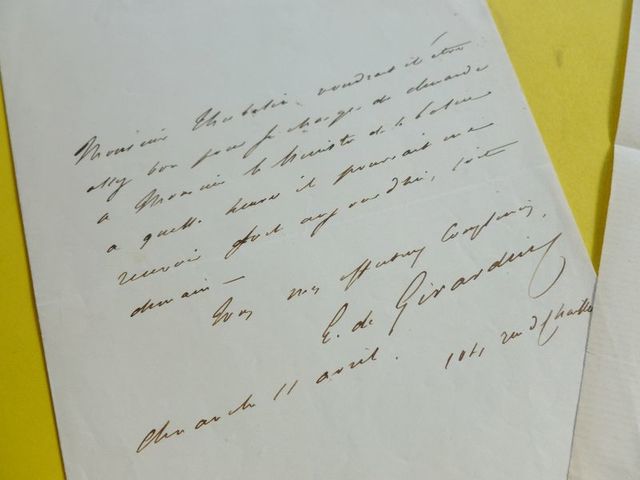 Monsieur voudrait il être
assez bon pour se charger de demander
à Monsieur le Ministre de la
à quelle heure il pourrait me
recevoir soit aujourd'hui, soit
demain —
Tous mes affectueux compliments,
E. de Girardin
dimanche 11 avril.
rue de Chaillot